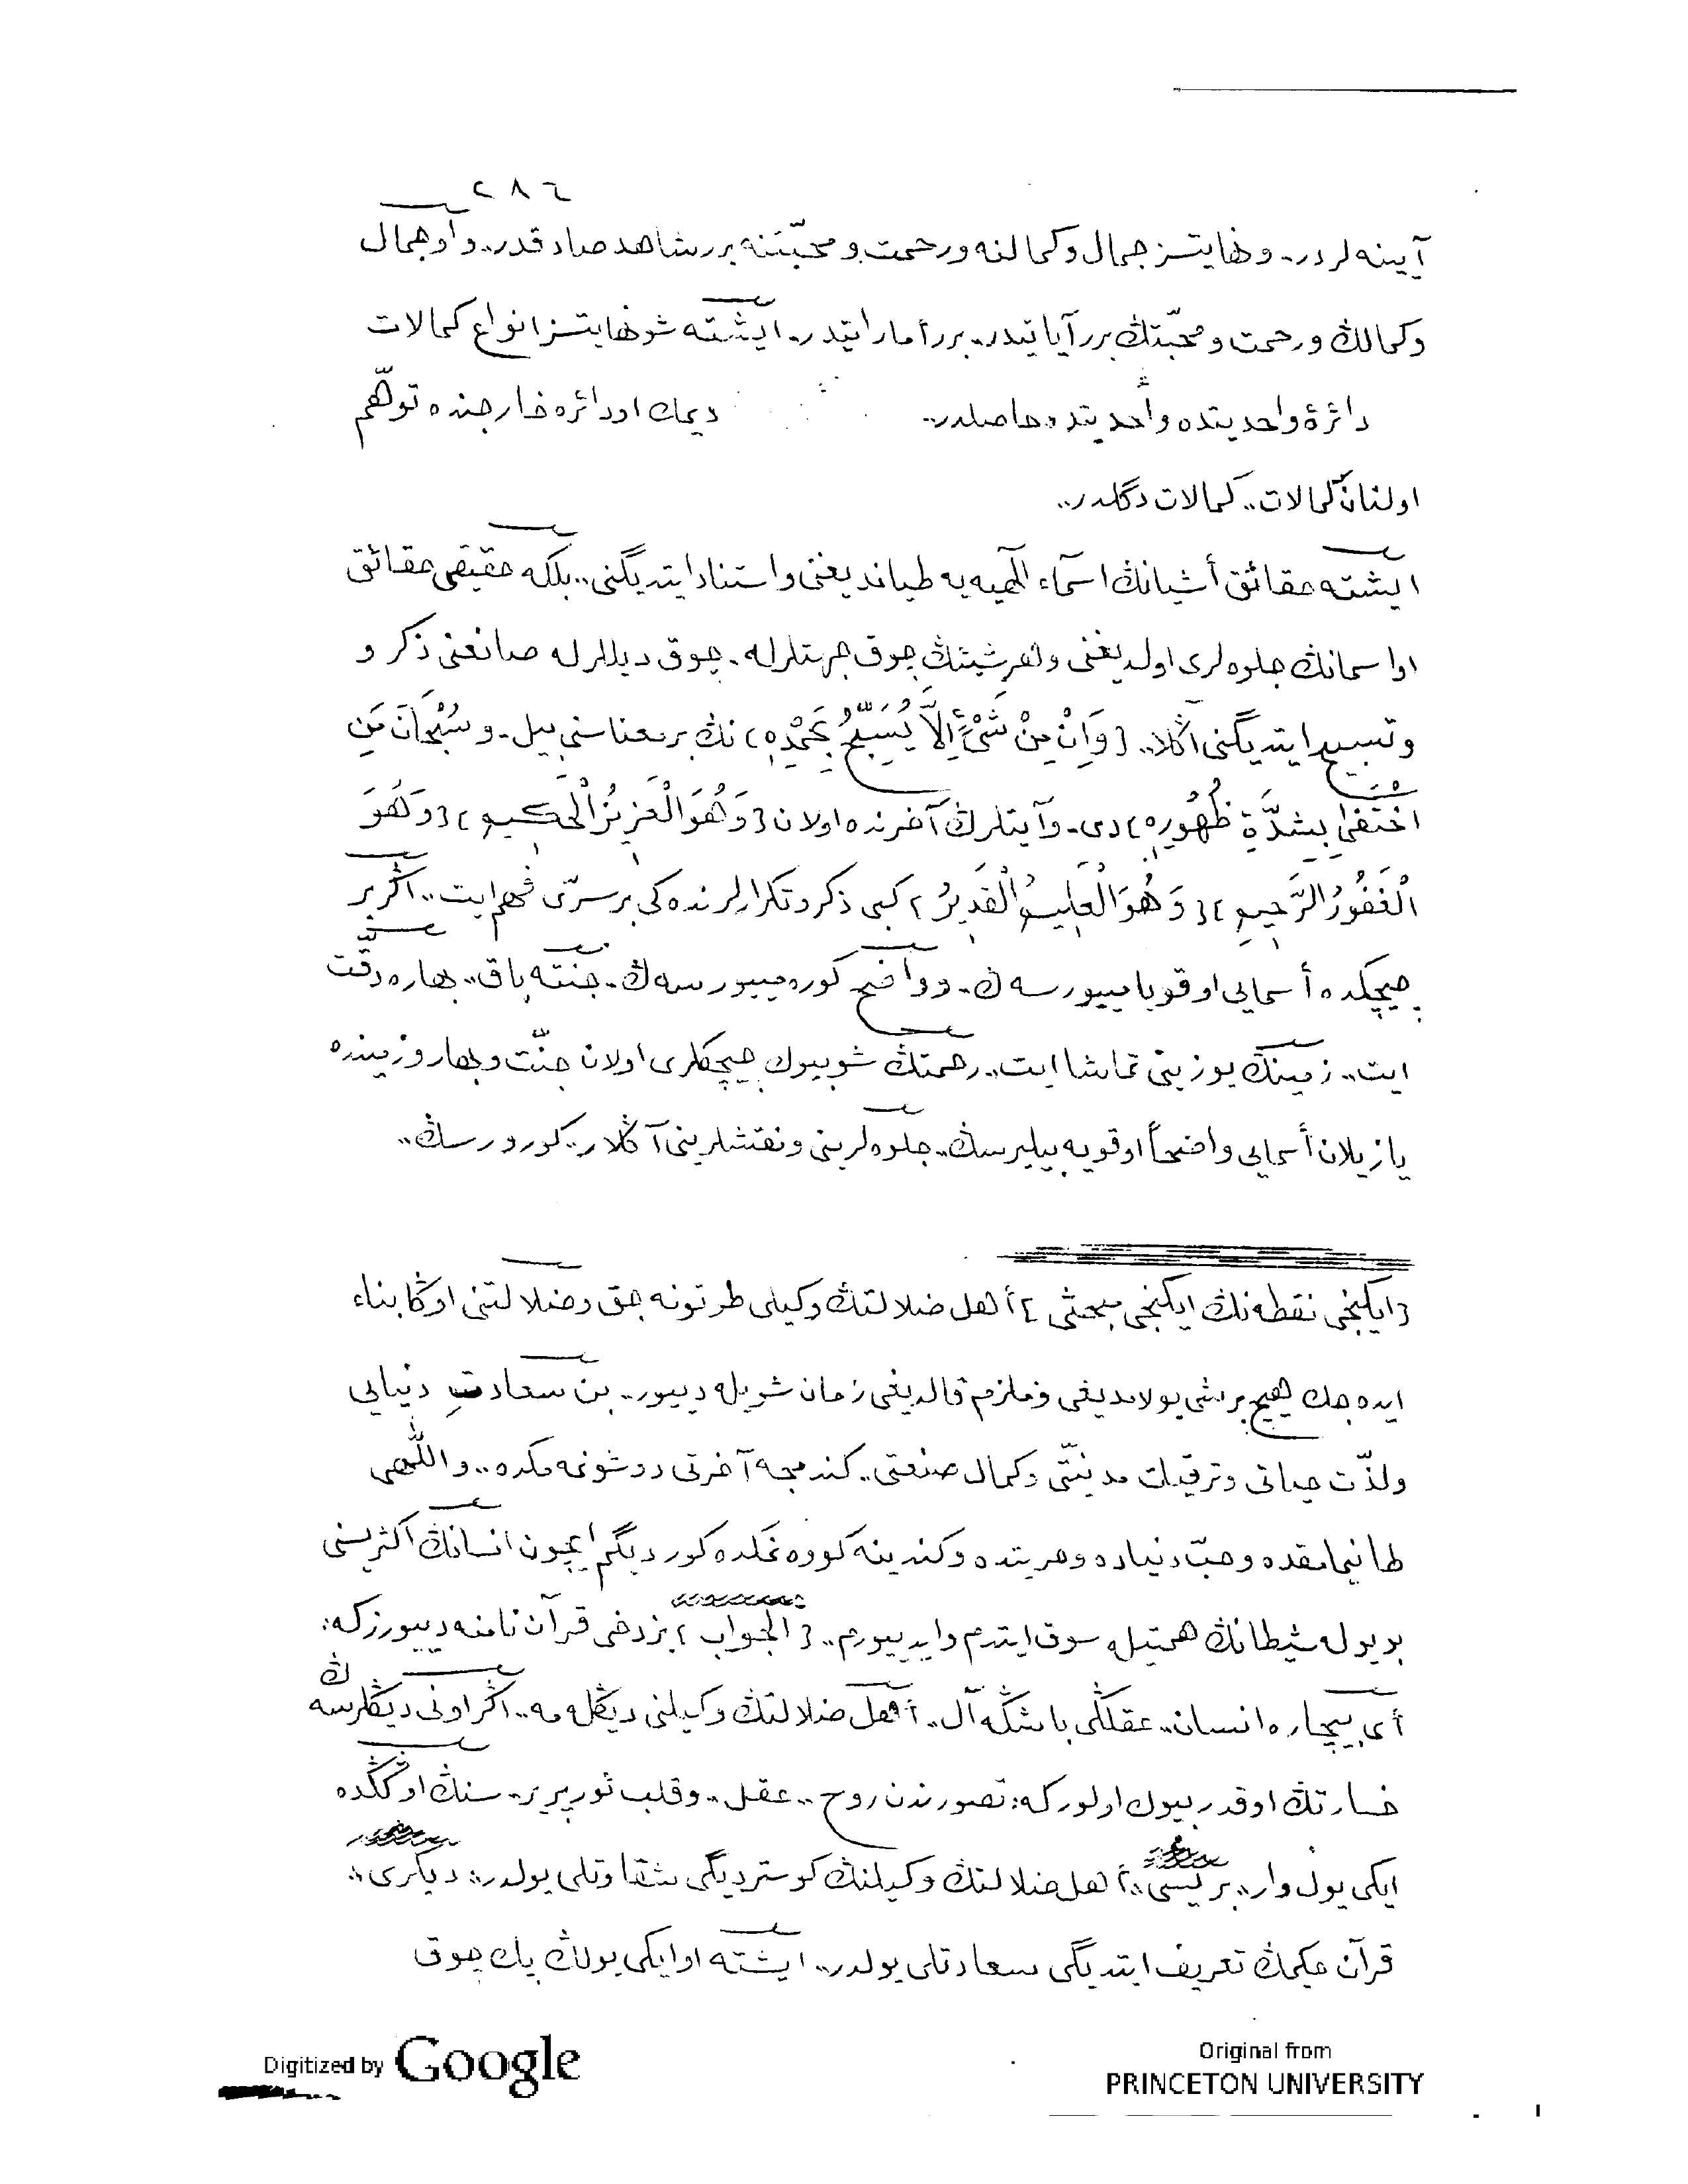 ٢٨٦
آیینه لردر.. ونهایتسز جمال وكمالنه ورحمت و محبّتنه برر شاهد صادقدر.. واو جمال
وكمالڭ ورحمت و محبّتڭ برر آیاتیدر.. برر أماراتیدر.. ایشته شو نهایتسز انواع كمالات
دائرۀ واحدیتده واحدیتده حاصلدر.. دیمك او دائره خارجنده توهّم
اولنان كمالات.. كمالات دگلدر..
ایشته حقائق أشیانڭ اسمآء الٓهیه یه طیاندیغنی واستناد ایتدیگنی.. بلكه حقیقی حقائق
او اسمانڭ جلوه لری اولدیغنی و هر شیئڭ چوق جهتلرله.. چوق دیللرله صانعنی ذكر و
وتسبیح ایتدیگنی آڭلا.. {وَاِنْ مِنْ شَىْءٍ اِلَّا يُسَبِّحُ بِحَمْدِهِ} نڭ بر معناسنی بیل.. و سُبْحَانَ مَنِ
اخْتَفٰى بِشِدَّةِ ظُهُورِهِ} دی.. وآیتلرڭ آخرنده اولان {وَهُوَ الْعَزِيزُ الْحَكِيمُ} {وَهُوَ
الْغَفُورُ الرَّحِيمُ} {وَهُوَ الْعَلِيمُ الْقَدِيرُ} كبی ذكر و تكرارلرنده كی بر سرّی فهم ایت.. اڭر بر
چیچكده أسمایی اوقویامییورسه ڭ.. وواضح كوره مییورسه ڭ.. جنّته باق.. بهاره دقّت
ایت.. زمینڭ یوزینی تماشا ایت.. رحمتڭ شو بیوك چیچكلری اولان جنّت وبهار وزمینده
یازیلان أسمایی واضحاً اوقویه بیلیرسڭ.. جلوه لرینی ونقشلرینی آڭلار.. كورورسڭ..
{ایكنجی نقطه نڭ ایكنجی مبحثی} أهل ضلالتڭ وكیلی طوتونه جق وضلالتنی اوڭا بناء
ایده جك هیچ بر شی بولامدیغی وملزم قالدیغی زمان شویله دییور.. بن سعادتِ دنیایی
ولذّت حیاتی وترقیات مدنیّتی وكمال صنعتی.. كندمجه آخرتی دوشونمه مكده.. واللّهی
طانیمامقده وحبّ دنیاده وحریتده وكندینه كووه نمكده كوردیگم ایچون انسانڭ اكثریسنی
بو یوله شیطانڭ همتیله سوق ایتدم وایدییورم.. {الجواب} بز دخی قرآن نامنه دییورز كه:
أی بیچاره انسان.. عقلڭی باشڭه آل.. أهل ضلالتڭ وكیلنی دیڭله مه.. اڭر اونی دیڭلرسه ڭ
خسارتڭ اوقدر بیوك اولور كه: تصورندن روح.. عقل.. وقلب ئورپریر.. سنڭ اوڭڭده
ایكی یول وار.. بریسی.. أهل ضلالتڭ وكیلنڭ كوستردیگی شقاوتلی یولدر.. دیگری..
قرآن حكیمڭ تعریف ایتدیگی سعادتلی یولدر.. ایشته او ایكی یولڭ پك چوق
Digitized by Google
Original from
PRINCETON UNIVERSITY